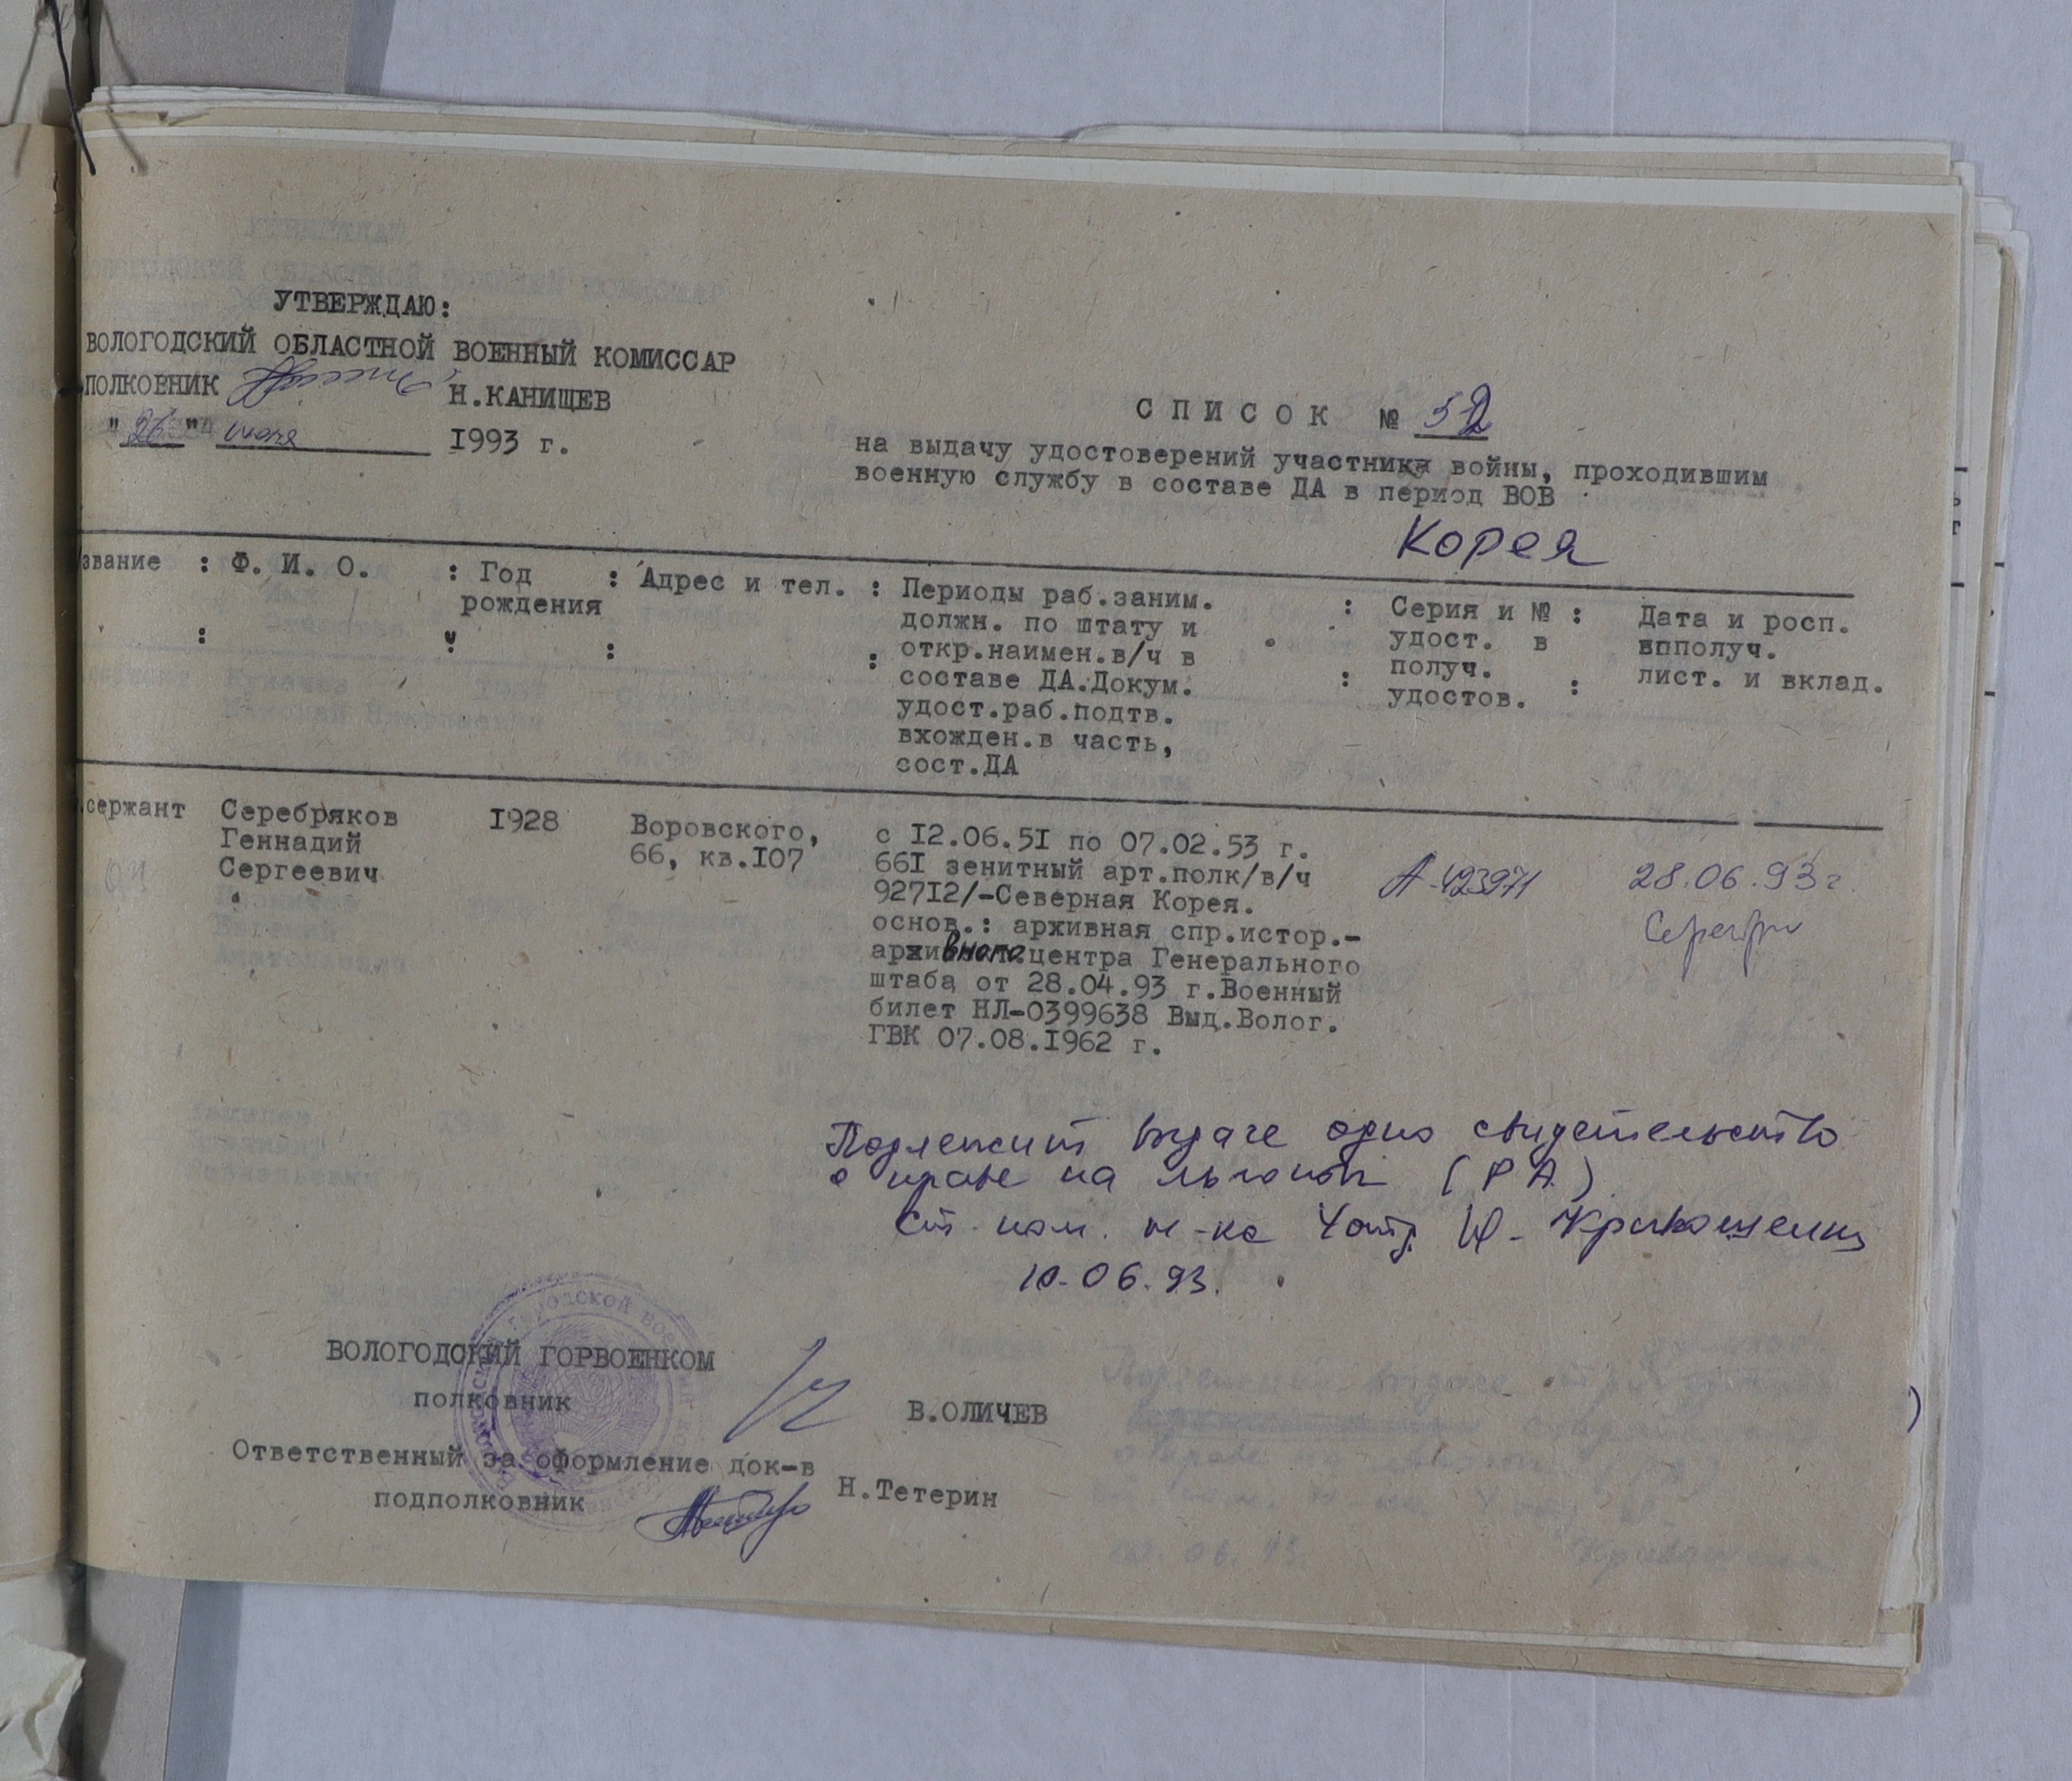 УТВЕРЖДАЮ:
ВОЛОГОДСКИЙ ОБЛАСТНОЙ ВОЕННЫЙ КОМИССАР
ПОЛКОВНИК Н.КАНИЩЕВ
"26" июня 1993 г.
СПИСОК № 52
на выдачу удостоверений участника войны, проходившим
военную службу в составе ДА в период ВОВ
Корея
звание : Ф. И. О. : Год рождения : Адрес и тел. : Периоды раб.заним. : Серия и № : Дата и росп.
должн. по штату и удост. в вполуч.
откр.наимен.в/ч в получ. лист. и вклад.
составе ДА.Докум. удостов.
удост.раб.подтв.
вхожден.в часть,
сост.ДА
сержант Серебряков 1928 Воровского, с 12.06.51 по 07.02.53 г.
Геннадий 66, кв.107 661 зенитный арт.полк/в/ч А-423971 28.06.93г.
Сергеевич 92712/-Северная Корея.
основ.: архивная спр.истор.-
архивного центра Генерального
штаба от 28.04.93 г.Военный
билет НЛ-0399638 Выд.Волог.
ГВК 07.08.1962 г.
Подлежит выдаче одно свидетельство
о праве на льготы (РА)
Ст. пом. н-ка
10.06.93.
ВОЛОГОДСКИЙ ГОРВОЕНКОМ
полковник В.ОЛИЧЕВ
Ответственный за оформление док-в
подполковник Н.Тетерин